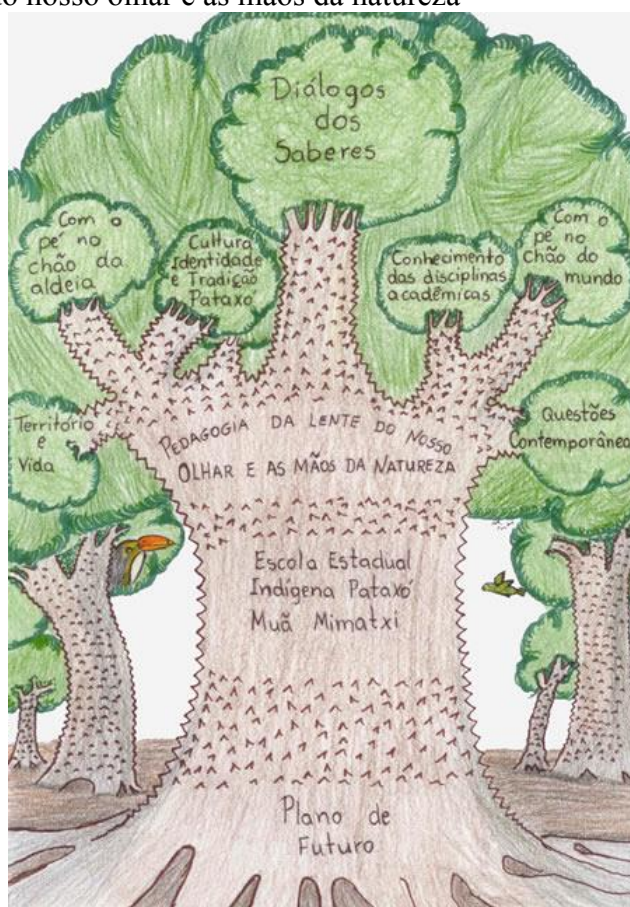 o nosso olhar e as mãos da natureza
Diálogos
dos
Saberes
Com o
pé no
chão da
aldeia
Cultura
Identidade
e Tradição
Pataxó
Conhecimento
das disciplinas
acadêmicas
Com o
pé no
chão do
mundo
Território
e
Vida
PEDAGOGIA DA LENTE DO NOSSO
OLHAR E AS MÃOS DA NATUREZA
Questões
Contemporânea
Escola Estadual
Indígena Pataxó
Muã Mimatxi
Plano de
Futuro